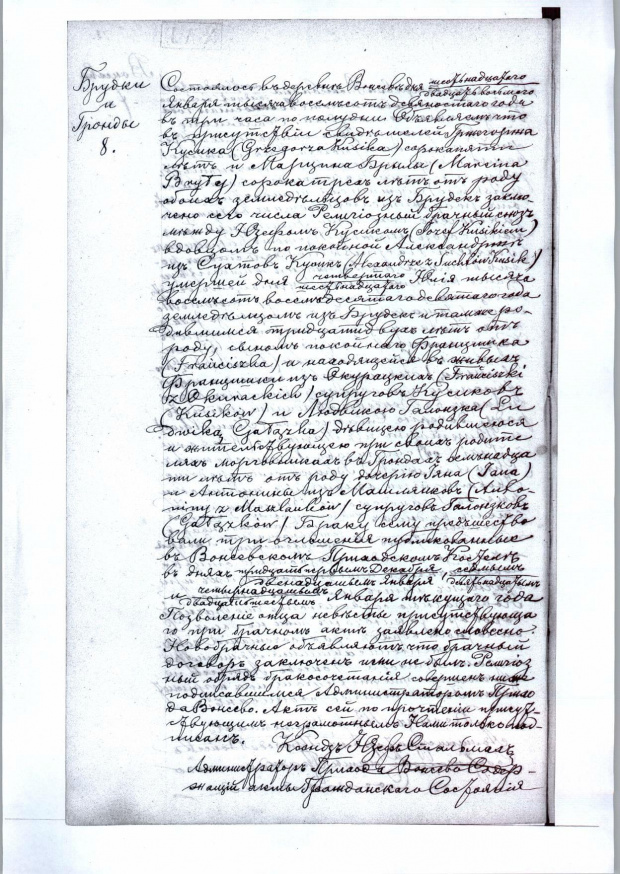 Брудки
и
Гронды
8.
Состоялось въ деревнѣ Вонсевѣ дня шестьнадцатаго
двадцать восьмаго
Января тысяча восемьсотъ девяностаго года
въ три часа по полудни. Объявляемъ что
въ присутствіи свидѣтелей Гржегоржа
Кусика (Grzegorza Kusika) сорока пяти
лѣтъ и Марцина Брылы (Marcina
Bryły) сорока трехъ лѣтъ отъ роду
обоихъ земледѣльцовъ изъ Брудекъ заклю-
чено сего числа Религіозный брачный союзъ
между Юзефомъ Кусикомъ (Józef Kusikiem)
вдовцомъ по покойной Александрѣ
изъ Сухтовъ Кусикъ (Alexandrze z Suchtów Kusik)
умершей дня четвертаго
шестьнадцатаго Юлія тысяча
восемьсотъ восемьдесятъ девятаго года
земледѣльцомъ изъ Брудекъ и тамже ро-
дившимся тридцати двухъ лѣтъ отъ
роду, сыномъ покойнаго Францишка
(Franciszka) и находящейся въ живыхъ
Францишки изъ Окурацкихъ (Franciszki
z Okurackich) супруговъ Кусиковъ
(Kusików) и Людвикою Галонзка (Lu
dwiką Gałązka) дѣвицею родившеюся
и жительствующею при своихъ родите
ляхъ морговникахъ въ Грондахъ семьнадца
ти лѣтъ отъ роду дочерью Яна (Jana)
и Антонины изъ Машлянковъ (Anto-
niny z Maszlanków) супруговъ Галонзковъ
(Gałązków) Браку сему предшество
вали три оглашенія публикованные
въ Вонсевскомъ Приходскомъ Костелѣ
въ дняхъ тридцать первымъ Декабря, седьмымъ
двенадцатымъ Января, девятьнадцатымъ
и четырнадцатымъ
двадцать шестымъ Января текущаго года
Позволеніе отца невѣсты присутствующа
го при брачномъ актѣ заявлено словесно.
Новобрачные объявляютъ что брачный
договоръ заключенъ ими не былъ. Религіоз
ный обрядъ бракосочетанія совершенъ ниже
подписавшимся Администраторомъ Прихо
да Вонсево. Актъ сей по прочтеніи присут-
ствующимъ неграмотнымъ Нами только под-
писанъ.
Ксендзъ Юзефъ Стальмахъ
Администраторъ Прихода Вонсево Содер-
жащій акты Гражданскаго Состоянія